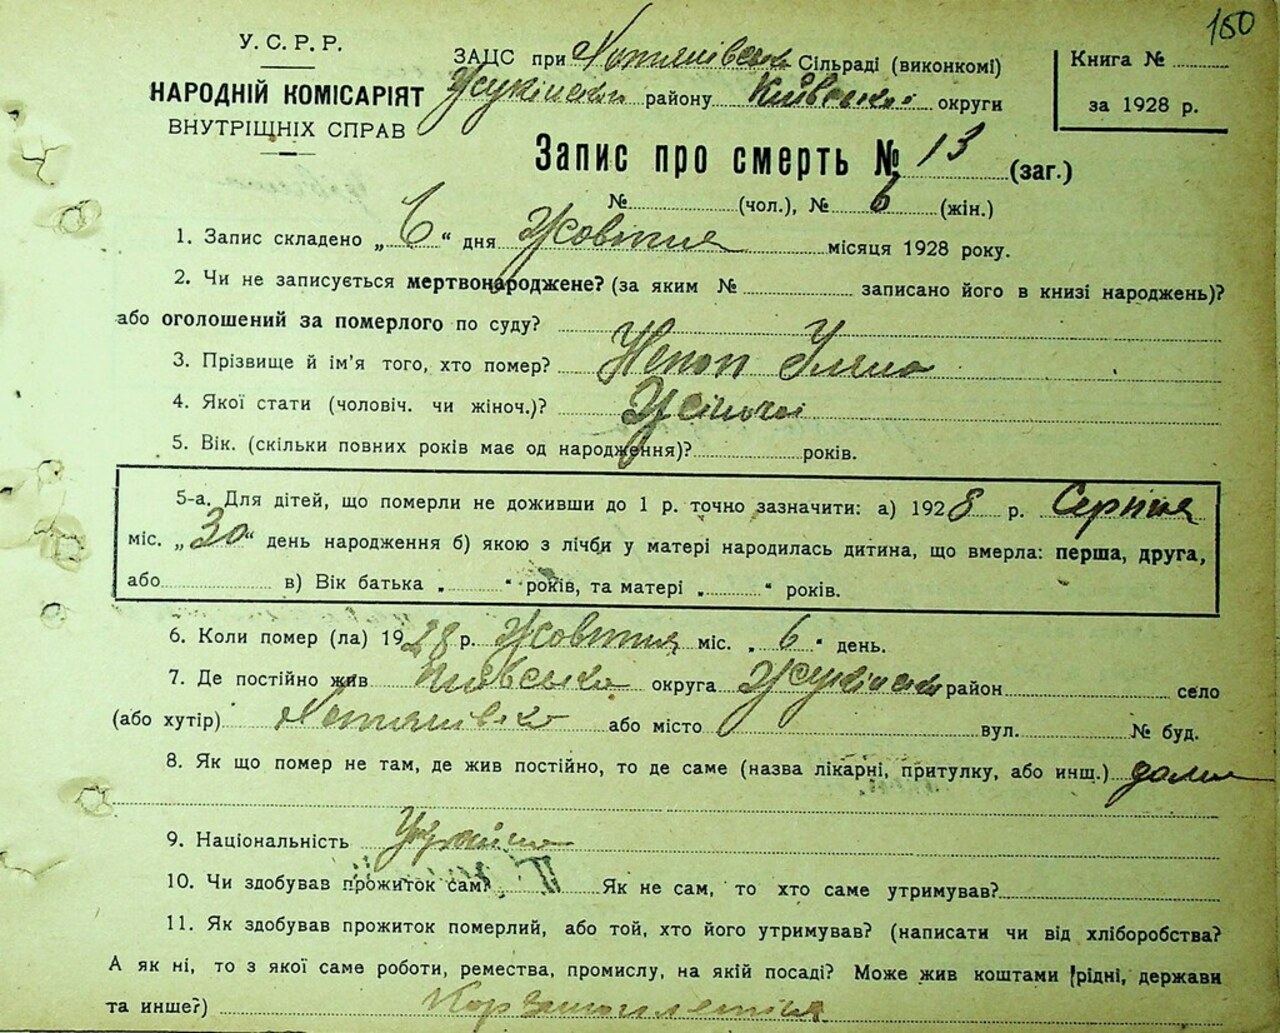 150
У. С. Р. Р.
НАРОДНІЙ КОМІСАРІЯТ
ВНУТРІШНІХ СПРАВ
ЗАЦС при Хотянівській Сільраді (виконкомі)
Жукінськ району Київської округи
Книга №
за 1928 р.
Запис про смерть № 13 (заг.)
№ (чол.), № 6 (жін.)
1. Запис складено „ 6 “ дня Жовтня місяця 1928 року.
2. Чи не записується мертвонароджене? (за яким № записано його в книзі народжень)?
або оголошений за померлого по суду?
3. Прізвище й ім'я того, хто помер? Непоп Уляна
4. Якої стати (чоловіч. чи жіноч.)? Жіночої
5. Вік. (скільки повних років має од народження)? років.
5-а. Для дітей, що померли не доживши до 1 р. точно зазначити: а) 1928 р. Серпня
міс. „ 30 “ день народження б) якою з лічби у матері народилась дитина, що вмерла: перша, друга,
або в) Вік батька „ “ років, та матері „ “ років.
6. Коли помер (ла) 1928 р. Жовтня міс. „ 6 “ день.
7. Де постійно жив Київська округа Жукінськ район село
(або хутір) Хотянівка або місто вул. № буд.
8. Як що помер не там, де жив постійно, то де саме (назва лікарні, притулку, або инш.) дома
9. Національність Україн
10. Чи здобував прожиток сам? Як не сам, то хто саме утримував?
11. Як здобував прожиток померлий, або той, хто його утримував? (написати чи від хліборобства?
А як ні, то з якої саме роботи, ремества, промислу, на якій посаді? Може жив коштами рідні, держави
та инше?)